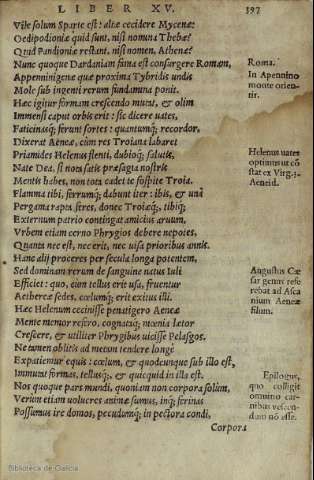 LIBER XV. 397
Vile solum Sparte est: altæ cecidere Mycenæ?
Oedipodioniæ quid sunt, nisi nomina Thebæ?
Quid Pandioniæ restant, nisi nomen, Athenæ?
Nunc quoque Dardaniam fama est consurgere Romam,
Appenninigenæ quæ proxima Tybridis undis
Mole sub ingenti rerum fundamina ponit.
Hæc igitur formam crescendo mutat, & olim
Immensi caput orbis erit: sic dicere uates,
Faticinasq; ferunt sortes: quantumq; recordor,
Dixerat Aeneæ, cùm res Troiana labaret
Priamides Helenus flenti, dubioq; salutis,
Nate Dea, si nota satis præsagia nostræ
Mentis habes, non tota cadet te sospite Troia.
Flamma tibi, ferrumq; dabunt iter: ibis, & unà
Pergama rapta feres, donec Troiæq;, tibiq;
Externum patrio contingat amicius aruum.
Vrbem etiam cerno Phrygios debere nepotes,
Quanta nec est, nec erit, nec uisa prioribus annis.
Hanc alij proceres per secula longa potentem,
Sed dominam rerum de sanguine natus Iuli
Efficiet: quo, cùm tellus erit usa, fruentur
Aethereæ sedes, cœlumq; erit exitus illi.
Hæc Helenum cecinisse penatigero Aeneæ
Mente memor refero, cognataq; mœnia lætor
Crescere, & utiliter Phrygibus uicisse Pelasgos.
Ne tamen oblitis ad metam tendere longè
Expatiemur equis: cœlum, & quodcunque sub illo est,
Immutat formas, tellusq;, & quicquid in illa est.
Nos quoque pars mundi, quoniam non corpora solùm,
Verùm etiam uolucres animæ sumus, inq; ferinas
Possumus ire domos, pecudumq; in pectora condi,
Corpora
Roma.
In Apennino
monte orien-
tir.
Helenus uates
optimus ut cō
stat ex Virg. 3.
Aeneid.
Augustus Cæ
sar genus refe
rebat ad Asca
nium Aeneæ
filium.
Epilogus,
quo colligit
omnino car-
nibus vescen-
dum nō esse.
Biblioteca de Galicia